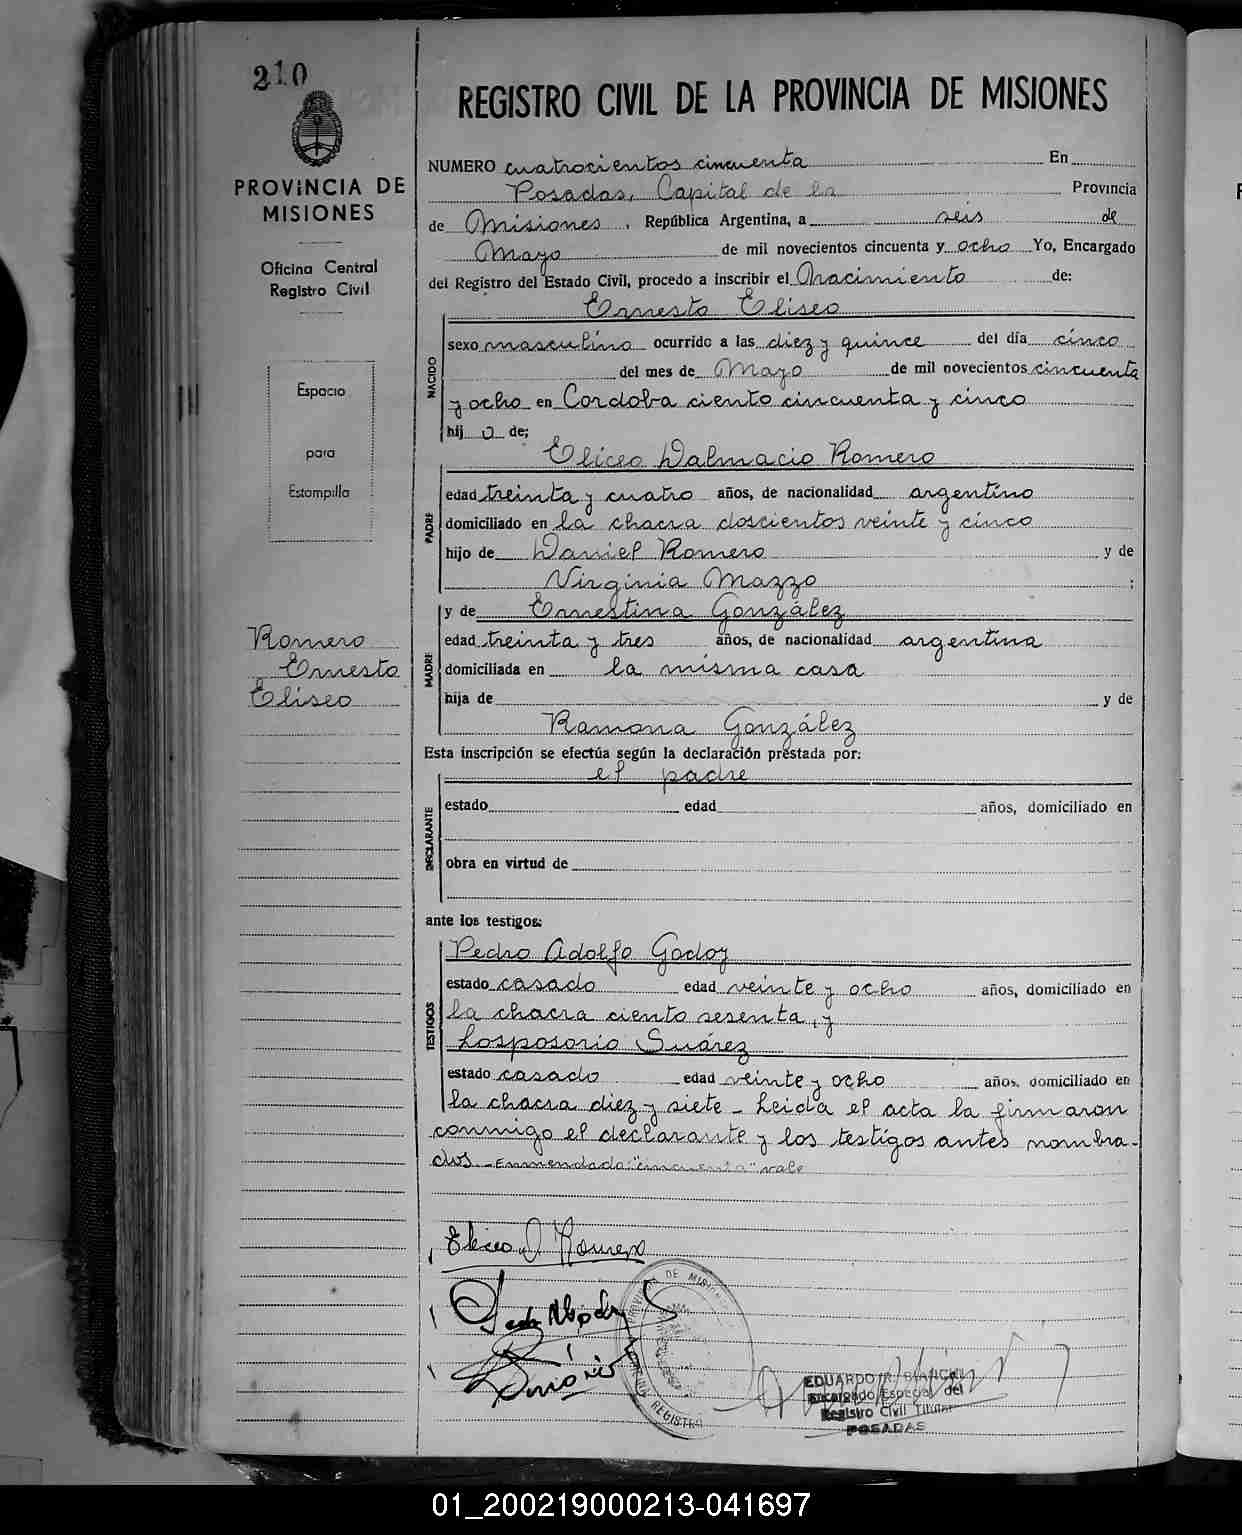 210
PROVINCIA DE
MISIONES
Oficina Central
Registro Civil
Espacio
para
Estampilla
Romero
Ernesto
Eliseo
REGISTRO CIVIL DE LA PROVINCIA DE MISIONES
NUMERO cuatrocientos cincuenta En
Posadas, Capital de la Provincia
de Misiones, República Argentina, a seis de
Mayo de mil novecientos cincuenta y ocho Yo, Encargado
del Registro del Estado Civil, procedo a inscribir el Nacimiento de:
Ernesto Eliseo
NACIDO
sexo masculino ocurrido a las diez y quince del día cinco
del mes de Mayo de mil novecientos cincuenta
y ocho en Cordoba ciento cincuenta y cinco
hij o de;
Eliceo Dalmacio Romero
PADRE
edad treinta y cuatro años, de nacionalidad argentino
domiciliado en la chacra doscientos veinte y cinco
hijo de Daniel Romero y de
Virginia Mazzo ;
y de Ernestina González
MADRE
edad treinta y tres años, de nacionalidad argentina
domiciliada en la misma casa
hija de y de
Ramona González
Esta inscripción se efectúa según la declaración prestada por:
el padre
DECLARANTE
estado edad años, domiciliado en
obra en virtud de
ante los testigos:
Pedro Adolfo Godoy
TESTIGOS
estado casado edad veinte y ocho años, domiciliado en
la chacra ciento sesenta, y
Losposorio Suárez
estado casado edad veinte y ocho años, domiciliado en
la chacra diez y siete - Leida el acta la firmaron
conmigo el declarante y los testigos antes nombra-
dos - Enmendado: "cincuenta" vale
Eliceo D Romero
PROVINCIA DE MISIONES
REGISTRO
EDUARDO R. BIANCHI
Encargado Especial del
Registro Civil Titular
POSADAS
01_200219000213-041697